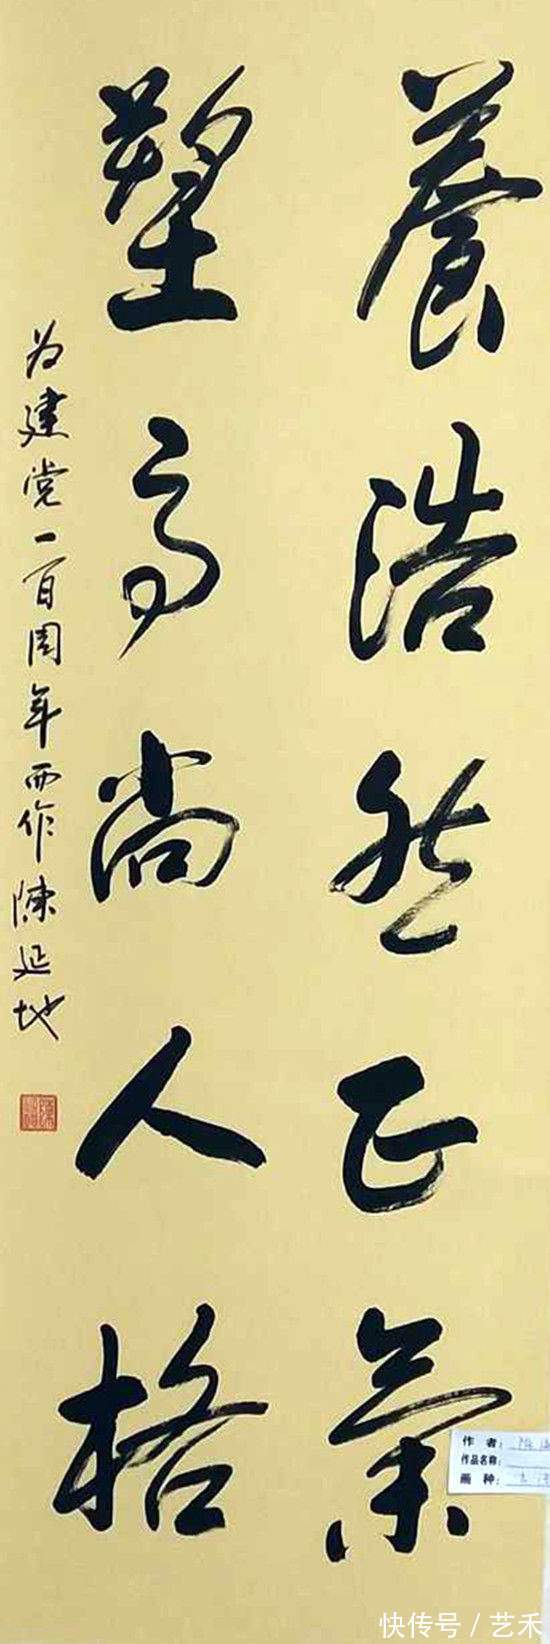 養浩然正氣
塑高尚人格
为建党一百周年而作 陳延地
作 者：
作品名称：
画 种：
快传号 / 艺禾